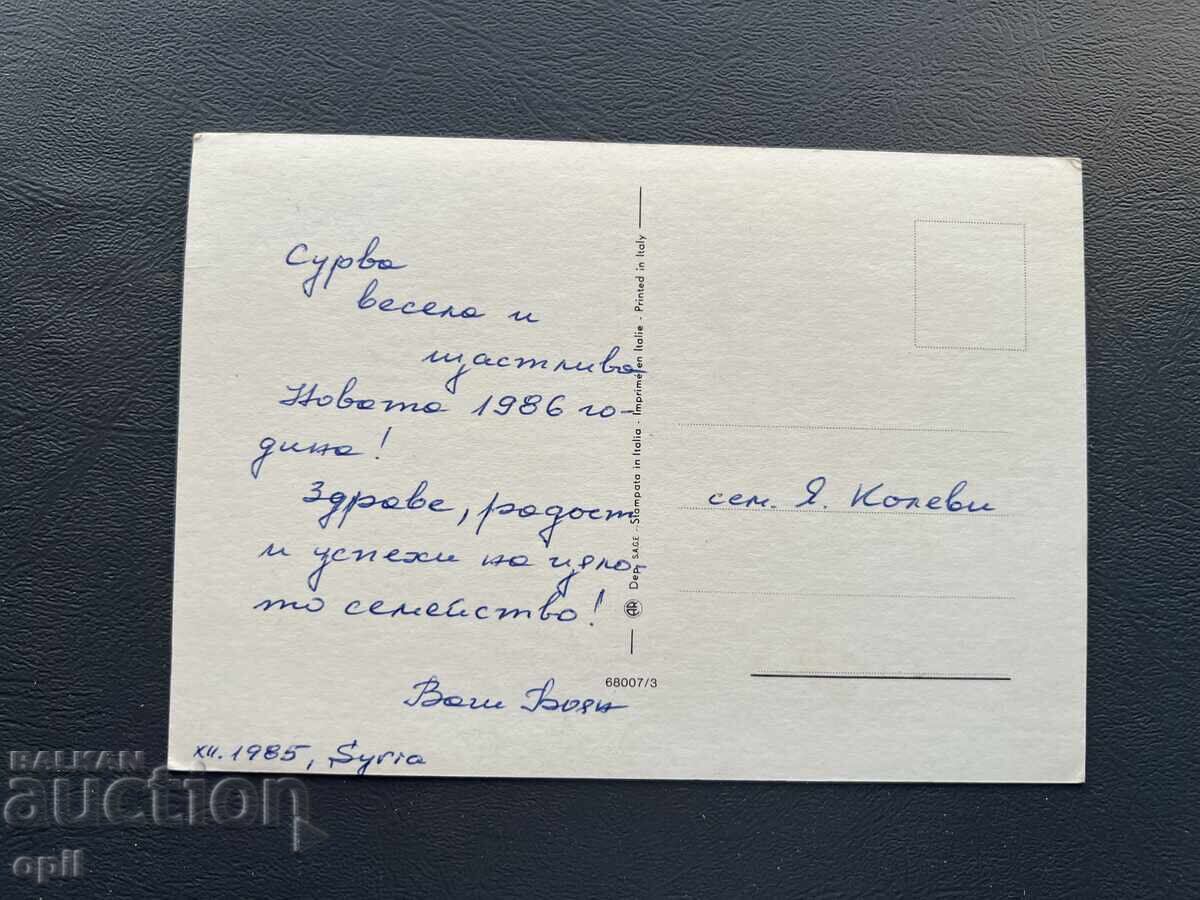 Сурва
весела и
щастлива
Новата 1986 го-
дина!
Здраве, радост
и успехи на цяло-
то семейство!
Ваш Боян
XII.1985, Syria
AR Dep. S.A.G.E. - Stampata in Italia - Imprimé en Italie - Printed in Italy
68007/3
сем. Я. Колеви
BALKAN
auction
opil